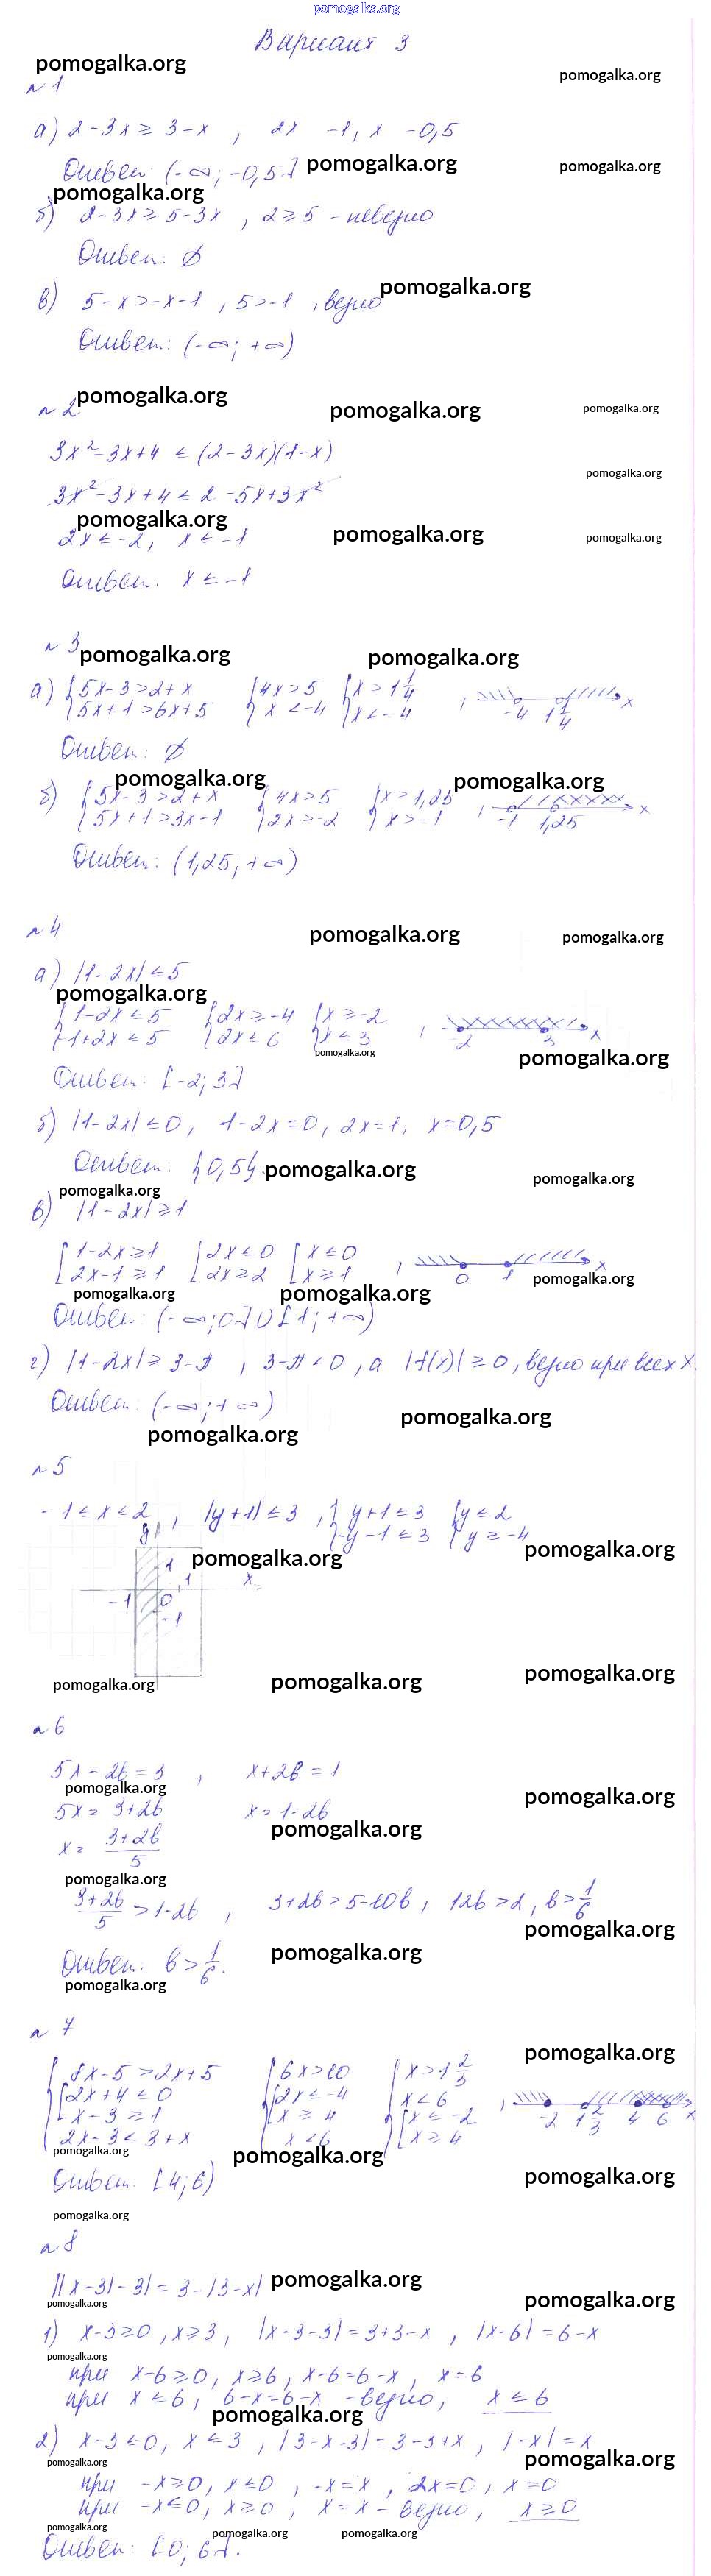 pomogalka.org
Вариант 3
pomogalka.org
№1
pomogalka.org
а) 2-3x ≥ 3-x , 2x -1, x -0,5
Ответ: (-∞; -0,5] pomogalka.org pomogalka.org
pomogalka.org
б) 2-3x ≥ 5-3x , 2 ≥ 5 - неверно
Ответ: ∅
pomogalka.org
в) 5-x > -x-1 , 5 > -1 , верно
Ответ: (-∞; +∞)
pomogalka.org
№2 pomogalka.org pomogalka.org
3x²-3x+4 ≤ (2-3x)(1-x)
pomogalka.org
3x²-3x+4 ≤ 2-5x+3x²
pomogalka.org pomogalka.org pomogalka.org
2x ≤ -2, x ≤ -1
Ответ: x ≤ -1
№3
pomogalka.org pomogalka.org
а) {5x-3>2+x {4x>5 {x>1 1/4
5x+1>6x+5 x<-4 x<-4 -4 1 1/4 x
Ответ: ∅
pomogalka.org pomogalka.org
б) {5x-3>2+x {4x>5 {x>1,25
5x+1>3x-1 2x>-2 x>-1 -1 1,25 x
Ответ: (1,25; +∞)
№4 pomogalka.org pomogalka.org
а) |1-2x| ≤ 5
pomogalka.org
{1-2x ≤ 5 {2x ≥ -4 {x ≥ -2
-1+2x ≤ 5 2x ≤ 6 x ≤ 3 -2 3 x
pomogalka.org pomogalka.org
Ответ: [-2; 3]
б) |1-2x| ≤ 0, 1-2x=0, 2x=1, x=0,5
Ответ: {0,5}. pomogalka.org pomogalka.org
pomogalka.org
в) |1-2x| ≥ 1
[1-2x ≥ 1 [2x ≤ 0 [x ≤ 0
2x-1 ≥ 1 2x ≥ 2 x ≥ 1 0 1 x
pomogalka.org pomogalka.org pomogalka.org
Ответ: (-∞; 0] U [1; +∞)
г) |1-2x| ≥ 3-π , 3-π < 0 , а |f(x)| ≥ 0, верно при всех x.
Ответ: (-∞; +∞) pomogalka.org
pomogalka.org
№5
-1 ≤ x ≤ 2 , |y+1| ≤ 3 , {y+1 ≤ 3 {y ≤ 2
-y-1 ≤ 3 y ≥ -4
y pomogalka.org pomogalka.org
1 1 x
-1 0
-1
pomogalka.org pomogalka.org pomogalka.org
№6
5x-2b=3 , x+2b=1
pomogalka.org pomogalka.org
5x=3+2b x=1-2b
pomogalka.org
x= 3+2b/5
pomogalka.org
3+2b/5 > 1-2b , 3+2b > 5-10b , 12b > 2 , b > 1/6
pomogalka.org
pomogalka.org
Ответ: b > 1/6.
pomogalka.org
№7
pomogalka.org
{8x-5>2x+5 {6x>10 {x>1 2/3
[2x+4 ≤ 0 [2x ≤ -4 x<6
x-3 ≥ 1 x ≥ 4 [x ≤ -2 -2 1 2/3 4 6 x
2x-3<3+x x<6 x ≥ 4
pomogalka.org pomogalka.org
Ответ: [4; 6) pomogalka.org
pomogalka.org
№8
||x-3|-3| = 3-|3-x| pomogalka.org
pomogalka.org pomogalka.org
1) x-3 ≥ 0 , x ≥ 3 , |x-3-3| = 3+3-x , |x-6| = 6-x
pomogalka.org
при x-6 ≥ 0, x ≥ 6, x-6=6-x , x=6
при x ≤ 6 , 6-x=6-x - верно, x ≤ 6
pomogalka.org
2) x-3 ≤ 0, x ≤ 3 , |3-x-3| = 3-3+x , |-x| = x
pomogalka.org pomogalka.org
при -x ≥ 0, x ≤ 0 , -x=x , 2x=0, x=0
при -x ≤ 0, x ≥ 0 , x=x - верно, x ≥ 0
pomogalka.org pomogalka.org pomogalka.org
Ответ: [0; 6].